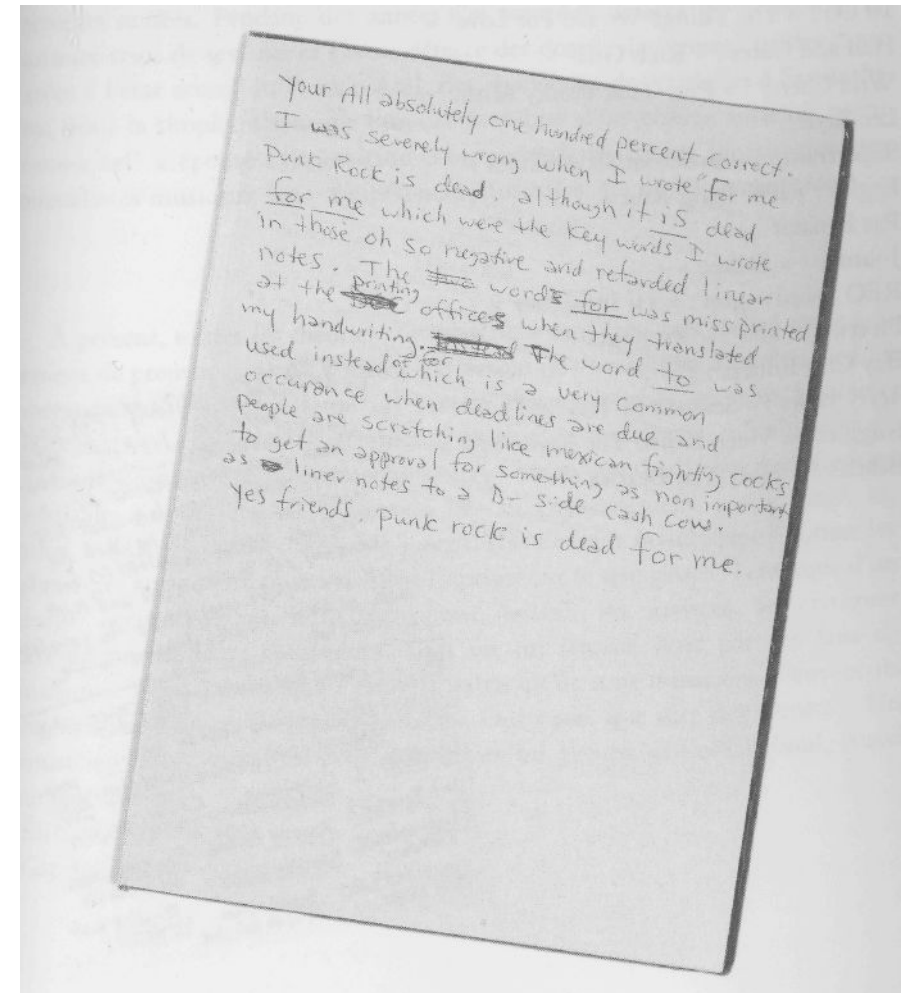 Your All absolutely one hundred percent correct.
I was severely wrong when I wrote "for me
Punk Rock is dead. although it is dead
for me which were the Key words I wrote
in those oh so negative and retarded linear
notes. The words for was miss printed
at the printing offices when they translated
my handwriting. The word to was
used instead of for which is a very common
occurance when deadlines are due and
people are scratching like mexican frighting cocks
to get an approval for something as non important
as liner notes to a B- side cash cow.
Yes friends. punk rock is dead for me.